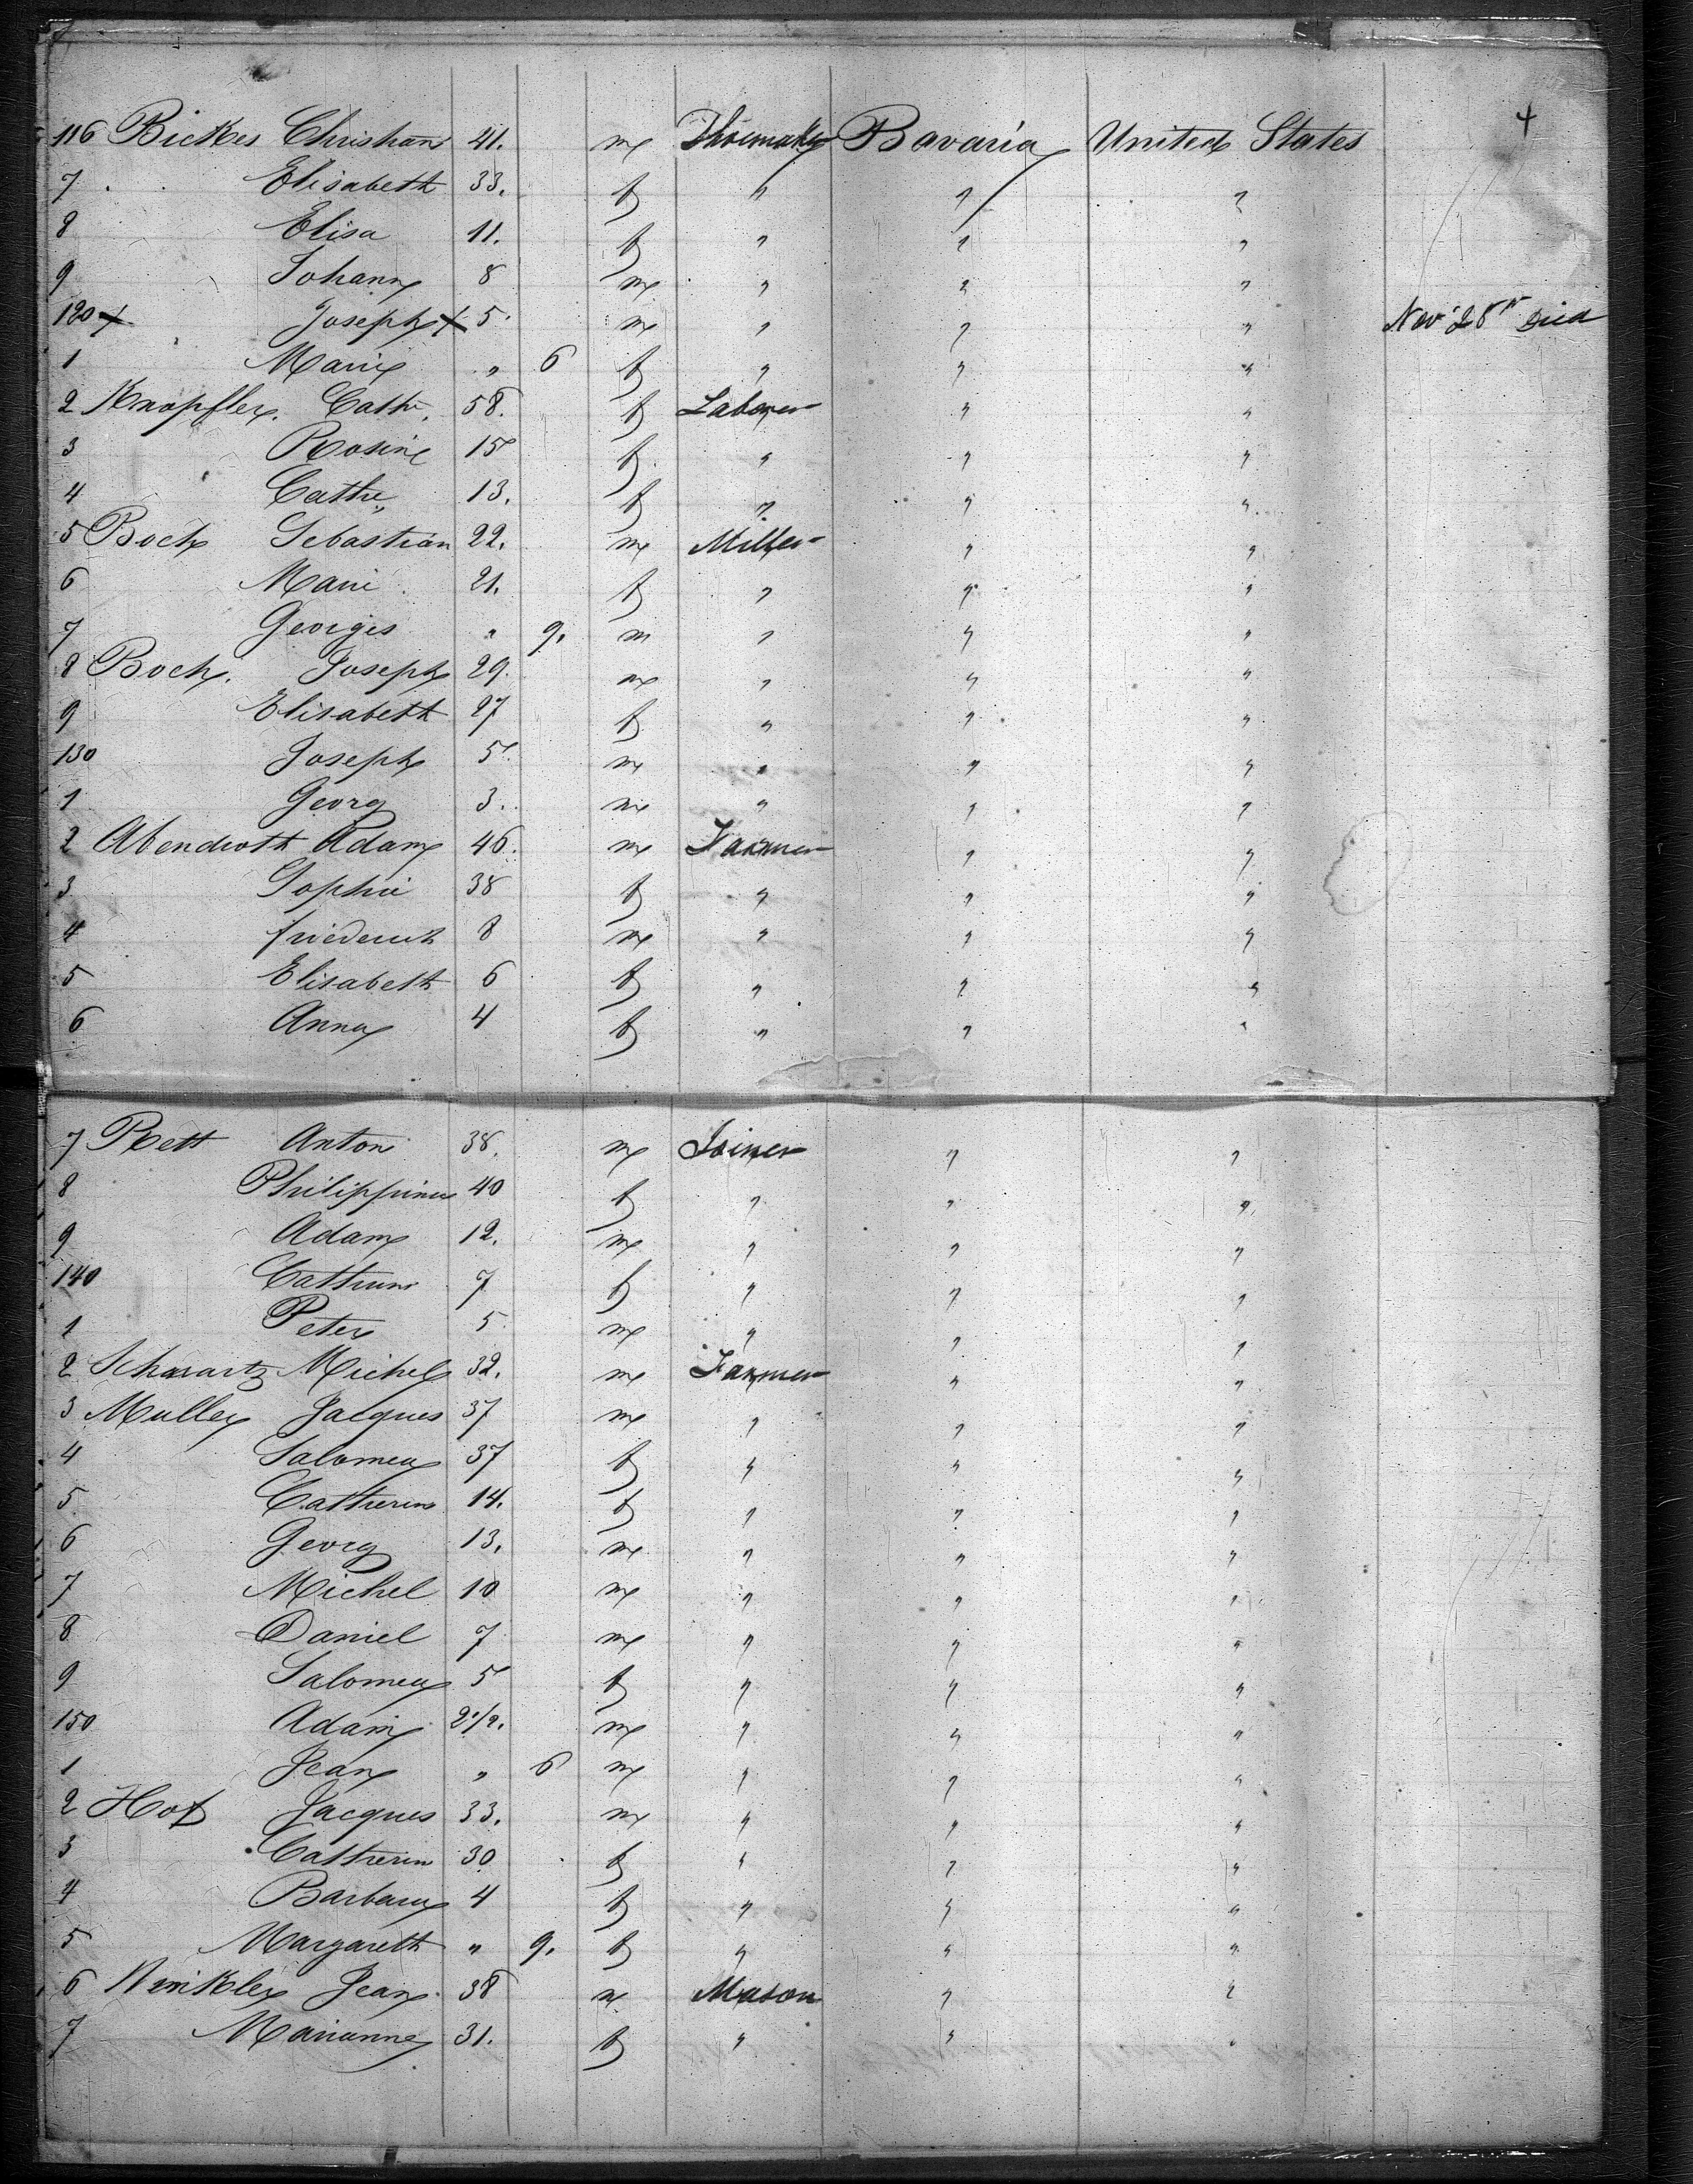 4
116 Bickes Christian 41. m Shoemaker Bavaria United States
7 Elisabeth 33. f " " "
8 Elisa 11. f " " "
9 Johann 8 m " " "
120 x Joseph x 5. m " " " Nov 28th Died
1 Marie " 6 f " " "
2 Knopfler. Cathe. 58. f Laborer " "
3 Rosine 15 f " " "
4 Cathe 13. f " " "
5 Boch Sebastian 22. m Miller " "
6 Marie 21. f " " "
7 Georges " 9. m " " "
8 Boch. Joseph 29. m " " "
9 Elisabeth 27 f " " "
130 Joseph 5. m " " "
1 Georg 3. m " " "
2 Abendroth Adam 46. m Farmer " "
3 Sophie 38 f " " "
4 friederich 8 m " " "
5 Elisabeth 6 f " " "
6 Anna 4 f " " "
7 Rett Anton 38. m Joiner " "
8 Philippine 40 f " " "
9 Adam 12. m " " "
140 Cathrine 7 f " " "
1 Peter 5 m " " "
2 Schwartz Michel 32. m Farmer " "
3 Muller Jacques 37 m " " "
4 Salomea 37 f " " "
5 Catherine 14. f " " "
6 Georg 13. m " " "
7 Michel 10 m " " "
8 Daniel 7 m " " "
9 Salomea 5 f " " "
150 Adam 2 1/2. m " " "
1 Jean " 6 m " " "
2 Hof Jacques 33. m " " "
3 Catherine 30 f " " "
4 Barbara 4 f " " "
5 Margareth " 9. f " " "
6 Jean 38 m Mason " "
7 Marianne 31. f " " "